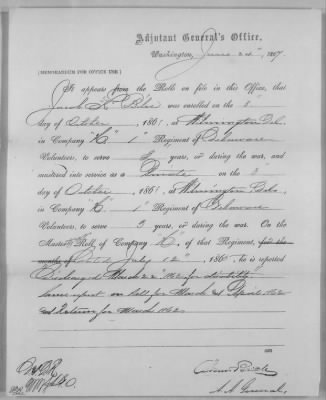 Adjutant General's Office,
Washington, June 24", 1867
(MEMORANDUM FOR OFFICE USE.)
It appears from the Rolls on file in this Office, that
Jacob was enrolled on the
day of October, 186, at Wilmington Del.
in Company " " 1" Regiment of Delaware
Volunteers, to serve 3 years, or during the war, and
mustered into service as a Private on the
day of October, 186, at Wilmington Del.
in Company " " 1" Regiment of Delaware
Volunteers, to serve 3 years, or during the war. On the
Muster Roll, of Company , of that Regiment, for the
months of dated July 12", 186, he is reported
Discharged March 22" 1862 for disability
Same report on Roll for March & April 1862
& Return for March 1862
A. A. General.